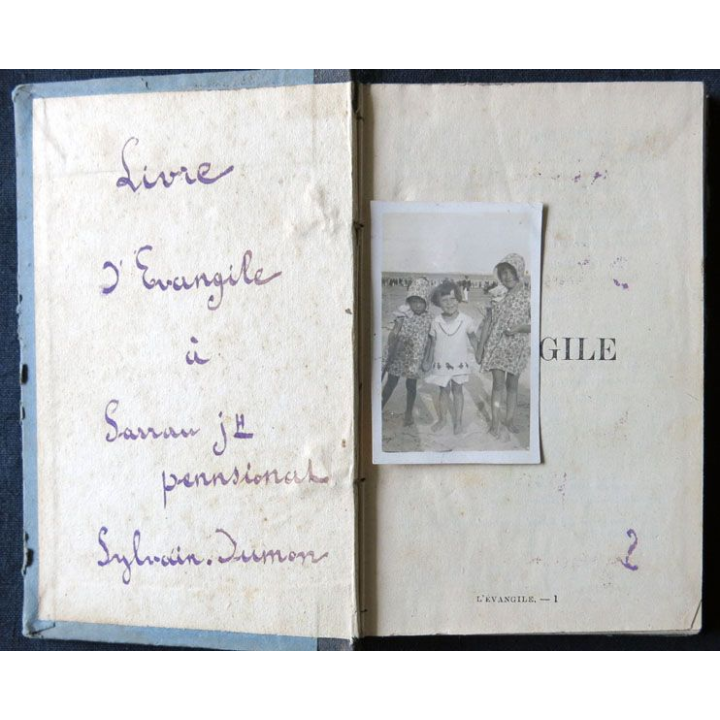 Livre
d'Evangile
à
Sarrau jH
pennsionat
Sylvain.Dumon
GILE
L'ÉVANGILE. — 1